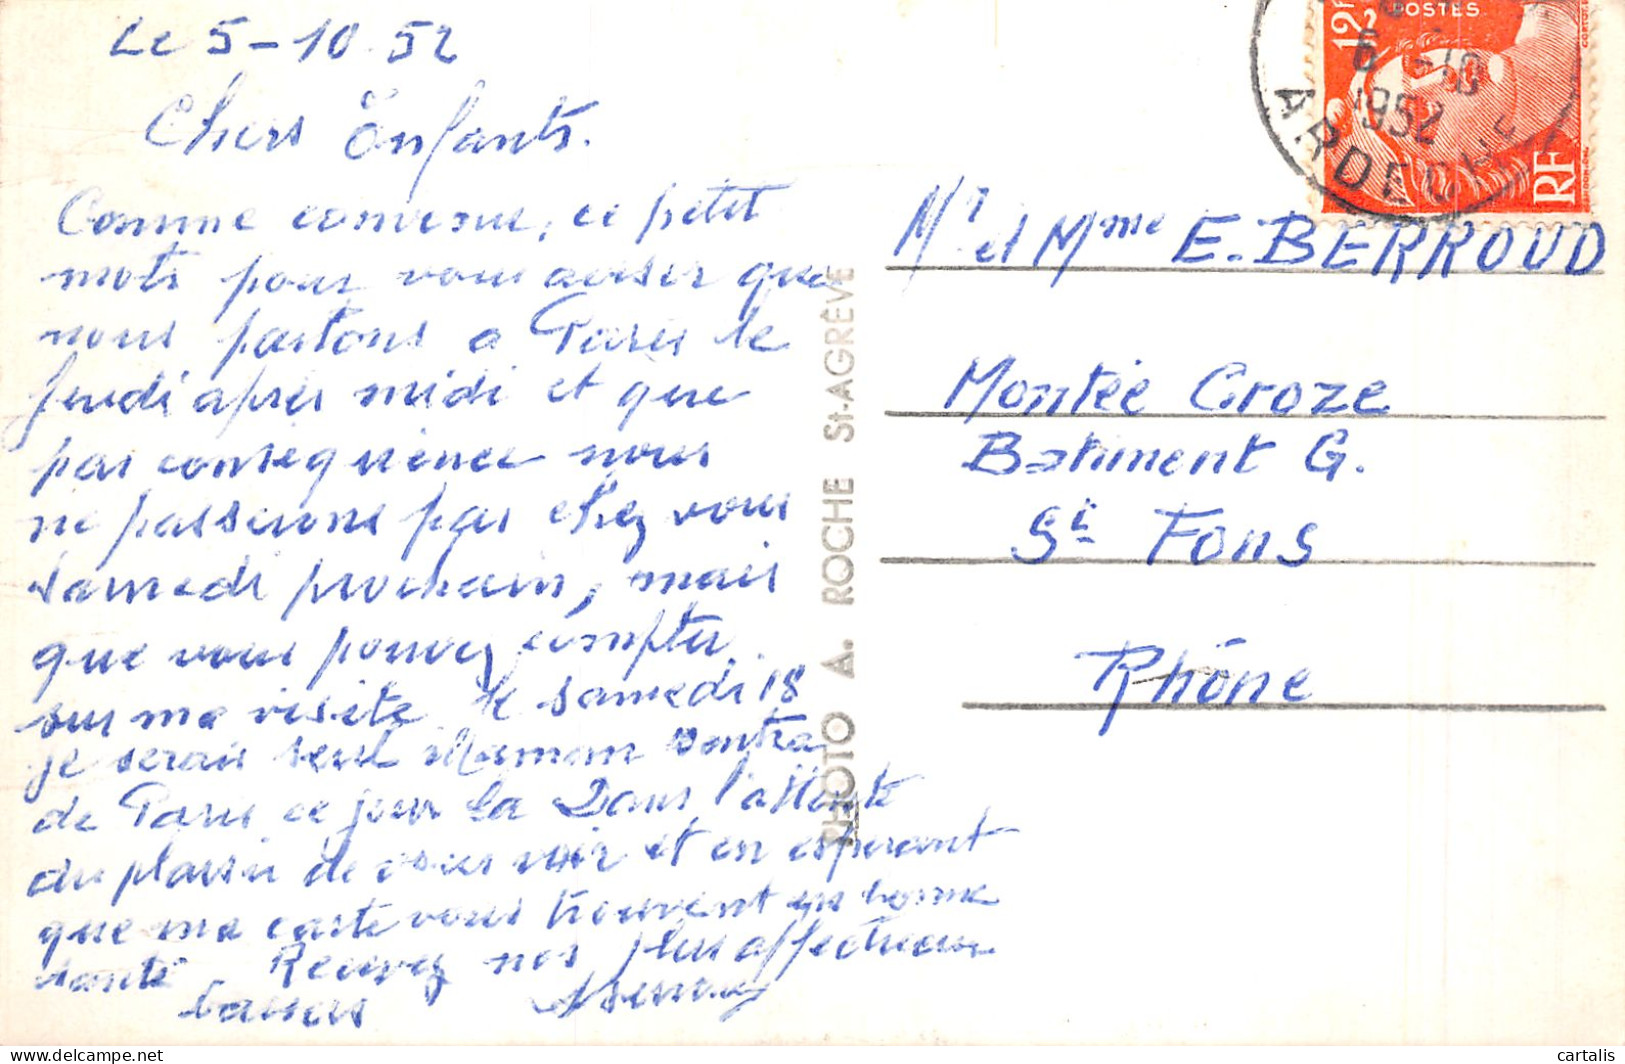 Le 5-10.52
Chers Enfants.
Comme convenue, ce petit
mots pour vous aviser que
nous partons a Paris le
Jeudi après midi et que
par consequence nous
ne passerons pas chez vous
samedi prochain, mais
que vous pouvez compter
sur ma visite le samedi 18
je serais seul Maman rentra
de Paris ce jour la Dans l'attente
du plaisir de vous voir et en esperant
que ma carte vous trouvent en bonne
santé. Recevez nos plus affectueux
baisers
PHOTO A. ROCHE St-AGRÈVE
12F
POSTES
RF
6 -10
1952
ARDECHE
Mr et Mme E. BERROUD
Montée Croze
Batiment G.
St Fons
Rhône
cartalis